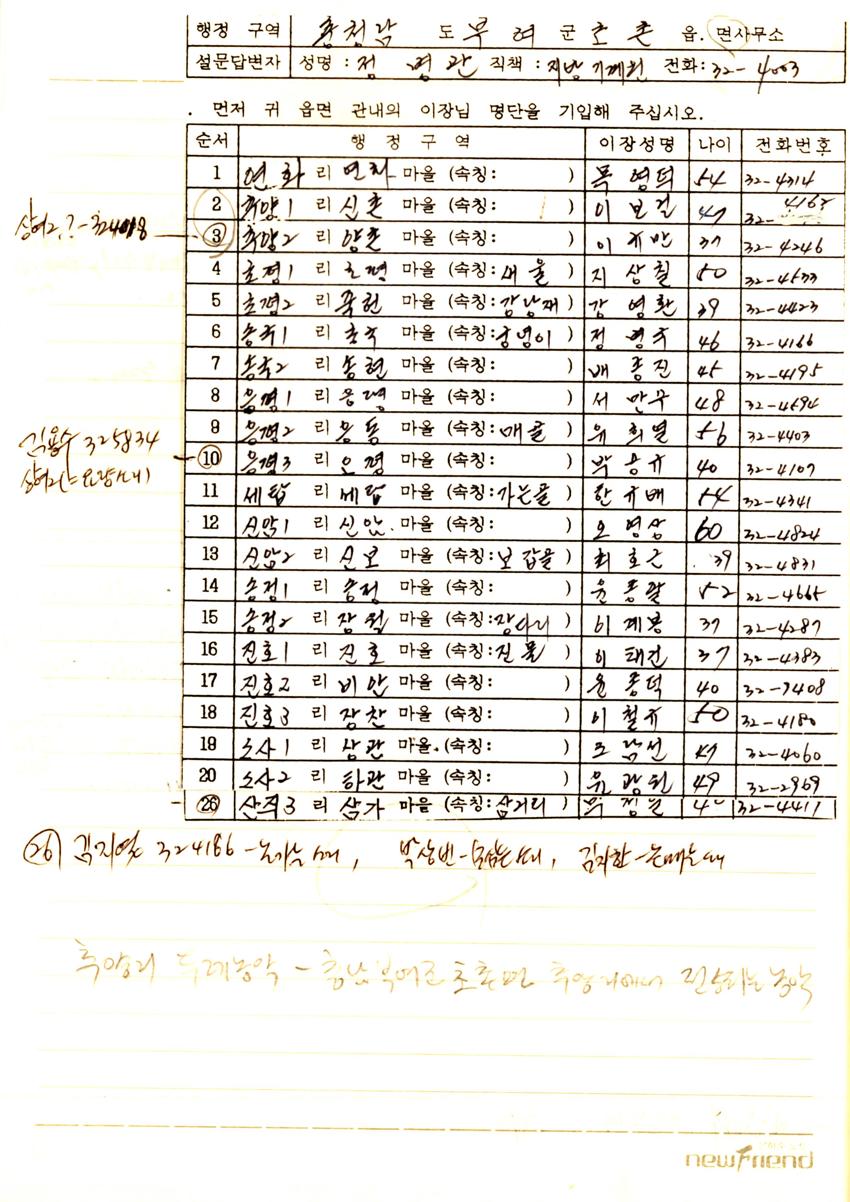 행정 구역 충청남 도 부여 군 초촌 읍. 면사무소
설문답변자 성명 : 정 명관 직책 : 지방기계원 전화: 32-4003
. 먼저 귀 읍면 관내의 이장님 명단을 기입해 주십시오.
순서 행 정 구 역 이장성명 나이 전화번호
1 연화 리 연화 마을 (속칭: ) 목영덕 54 32-4314
2 추양1 리 신촌 마을 (속칭: ) 이보걸 47 32-4167
상여2,?-324018 ③ 추양2 리 양촌 마을 (속칭: ) 이 만 37 32-4246
4 초평1 리 초평 마을 (속칭:새울 ) 지상칠 50 32-4533
5 초평2 리 마을 (속칭:강낭재 ) 강영환 39 32-4423
6 송국1 리 초국 마을 (속칭: ) 정명국 46 32-4166
7 송국2 리 송현 마을 (속칭: ) 배종진 45 32-4195
8 응평1 리 응평 마을 (속칭: ) 서만우 48 32-4594
9 응평2 리 응동 마을 (속칭:매골 ) 유희열 56 32-4403
김용수 325834 ⑩ 응평3 리 오평 마을 (속칭: ) 박응규 40 32-4107
11 세탑 리 세탑 마을 (속칭:가는골 ) 한규배 54 32-4341
12 신암1 리 신암 마을 (속칭: ) 오영삼 60 32-4824
13 신암2 리 신보 마을 (속칭:보갑을 ) 최호근 39 32-4831
14 송정1 리 송정 마을 (속칭: ) 윤종팔 52 32-4665
15 송정2 리 장월 마을 (속칭: ) 이계봉 37 32-4287
16 진호1 리 진호 마을 (속칭:진물 ) 이태건 37 32-4383
17 진호2 리 비안 마을 (속칭: ) 윤종덕 40 32-7408
18 진호3 리 장찬 마을 (속칭: ) 이철규 50 32-4180
19 소사1 리 상관 마을. (속칭: ) 조남선 47 32-4060
20 소사2 리 하관 마을 (속칭: ) 유광원 49 32-2969
㉖ 산직3 리 삼가 마을 (속칭:삼거리 ) 32-4411
㉖ 김지영 324186 - 논가는소리, 박상빈-모심는소리, 김지환-논매는소리
추양리 두레농악 - 충남 부여군 초촌면 추양리에서 전승되는 농악
newFriend